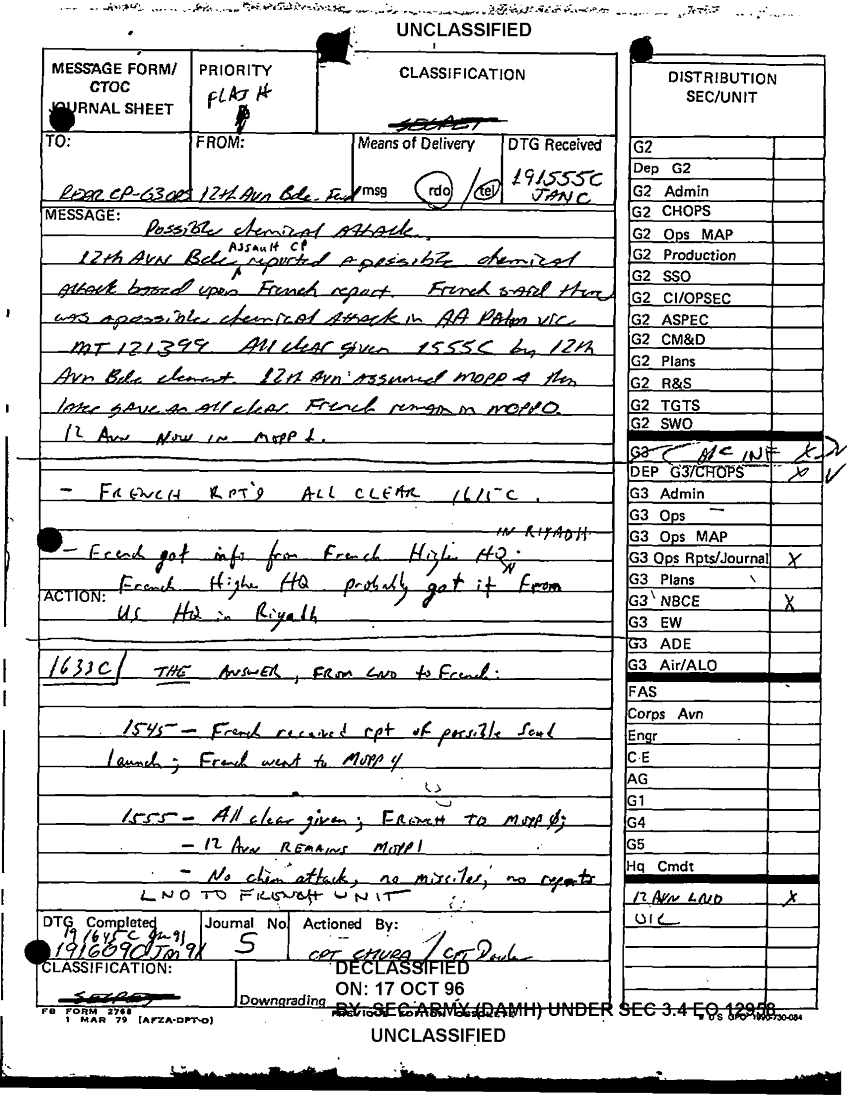 UNCLASSIFIED
MESSAGE FORM/
CTOC
JOURNAL SHEET
PRIORITY
FLASH
CLASSIFICATION
SECRET
TO:
REAR CP-G3 OPS
FROM:
12th Avn Bde. Fwd
Means of Delivery
msg rdo / tel
DTG Received
191555C
JAN
MESSAGE:
Possible chemical Attack.
Assault CP
12th AVN Bde reported a possible chemical
attack based upon French report. French said there
was a possible chemical Attack in AA PAlm vic
MT 121399. All clear given 1555C by 12th
Avn Bde element. 12th Avn assumed MOPP 4 then
later gave an all clear. French remain in MOPP0.
12 AVN NOW IN MOPP 1.
- FRENCH RPT'S ALL CLEAR 1615C.
IN RIYADH
- French got info from French Higher HQ.
French Higher HQ probably got it from
ACTION:
US HQ in Riyadh
1633C THE ANSWER, FROM LNO to French:
1545 - French received rpt of possible Scud
launch; French went to MOPP 4
1555 - All clear given; FRENCH TO MOPP 0;
- 12 AVN REMAINS MOPP 1
- No chem attack, no missiles, no reports
LNO TO FRENCH UNIT
DTG Completed
19 1645 C Jan 91
191609C Jan 91
Journal No
5
Actioned By:
CPT CHURA / CPT
CLASSIFICATION:
SECRET
Downgrading
DECLASSIFIED
ON: 17 OCT 96
BY: SEC ARMY (DAMH) UNDER SEC 3.4 EO 12958
FB FORM 2768
1 MAR 79 (AFZA-DPT-O)
UNCLASSIFIED
DISTRIBUTION
SEC/UNIT
G2
Dep G2
G2 Admin
G2 CHOPS
G2 Ops MAP
G2 Production
G2 SSO
G2 CI/OPSEC
G2 ASPEC
G2 CM&D
G2 Plans
G2 R&S
G2 TGTS
G2 SWO
G3 INF X
DEP G3/CHOPS X
G3 Admin
G3 Ops
G3 Ops MAP
G3 Ops Rpts/Journal X
G3 Plans
G3 NBCE X
G3 EW
G3 ADE
G3 Air/ALO
FAS
Corps Avn
Engr
C·E
AG
G1
G4
G5
Hq Cmdt
12 AVN LNO X